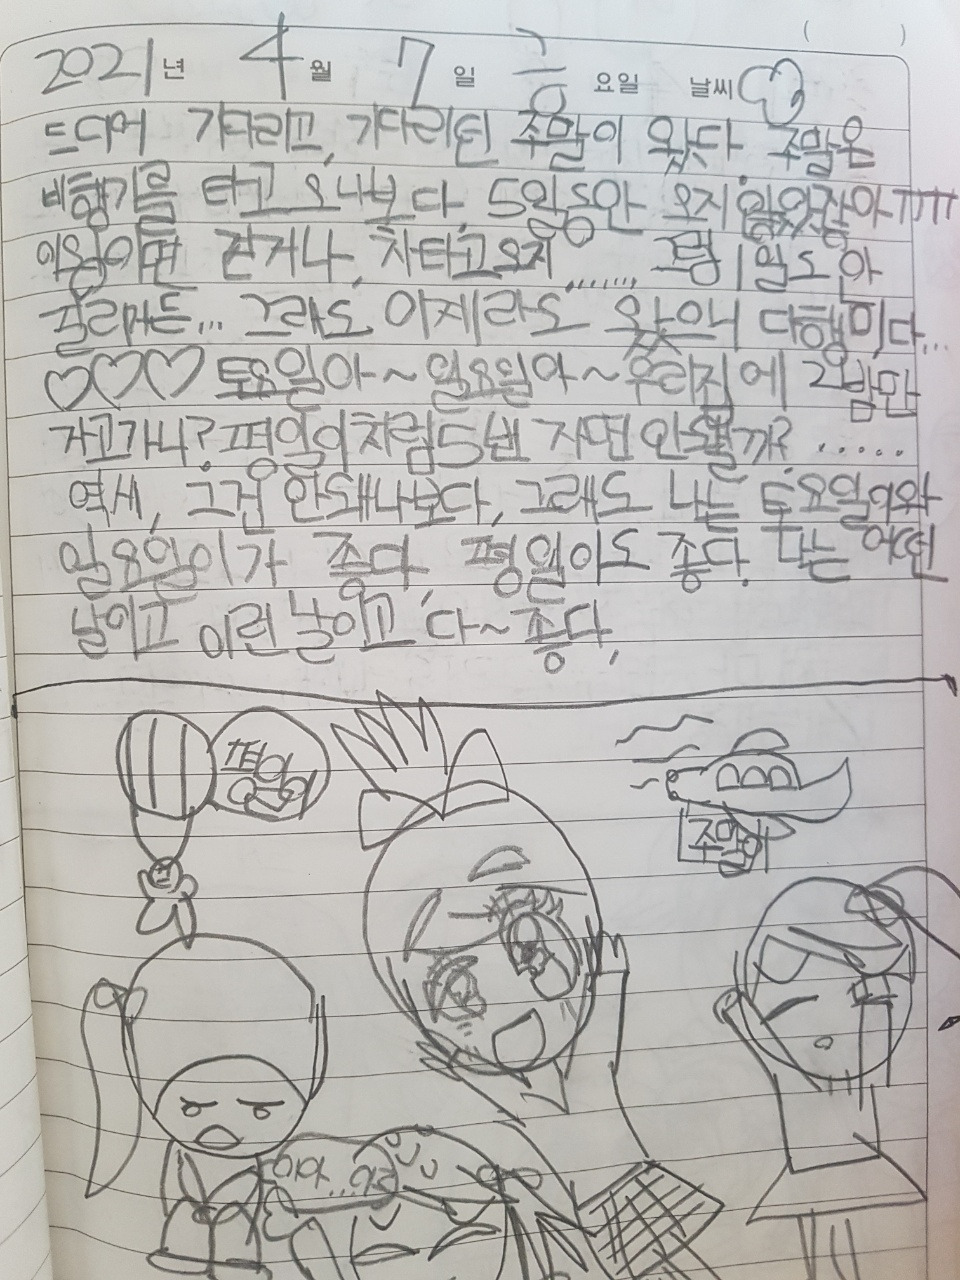 2021년 4월 7일 금요일 날씨
드디어 기다리고, 기다리던 주말이 왔다. 주말은
비행기를 타고 오나보다. 5일동안 오지않았잖아ㅠㅠ
이왕이면 걷거나, 차타고오지....... 그럼 1일도 안
걸리거든... 그래도 이제라도 왔으니 다행이다...
♡♡♡ 토요일아~ 일요일아~ 우리집에 2밤만
자고가니? 평일이처럼 5번 자면 안될까? .....
역시, 그건 안돼나보다, 그래도 나는 토요일이와
일요일이가 좋다. 평일이도 좋다. 나는 어떤
날이고 이런 날이고, 다~ 좋다.
평일
주말이